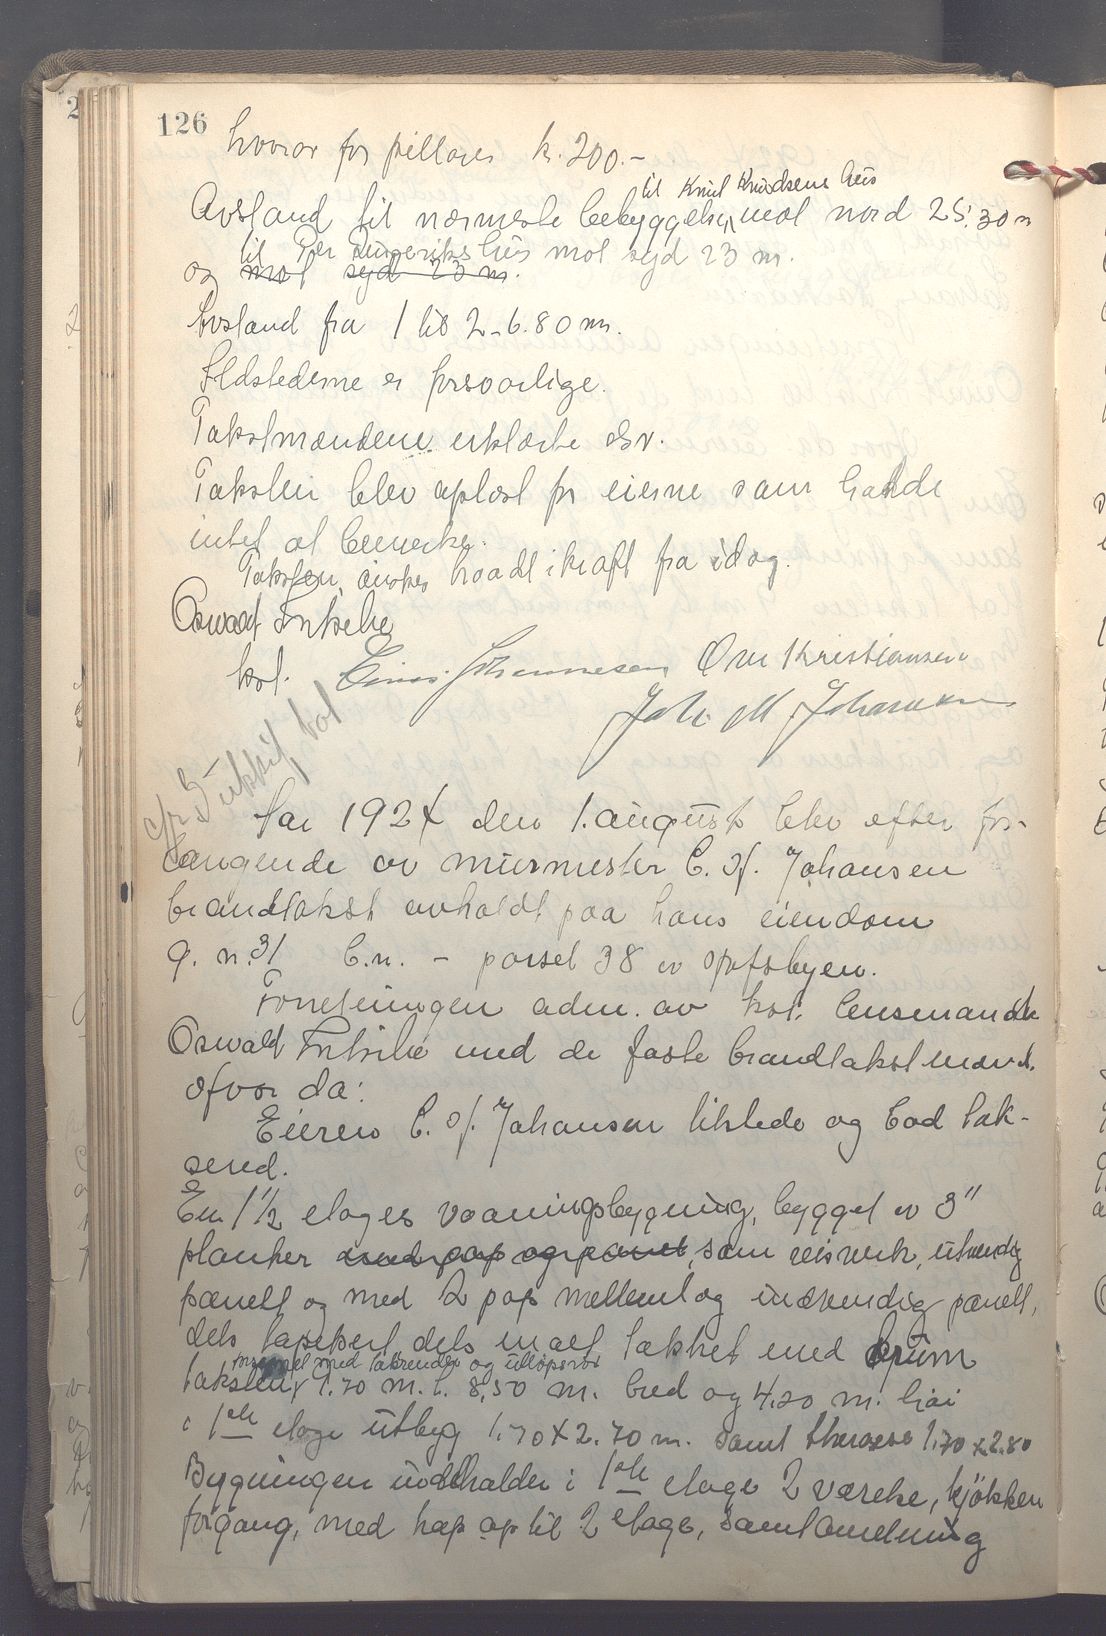 126
hvorav for pillarer kr. 200.-
til Knut Knudsens hus
Avstand til nærmeste bebyggelse, mot nord 25.30 m
til Per hus mot syd 23 m.
og mot syd 23 m.
Avstand fra 1 til 2 - 6.80 m.
Ildstederne er forsvarlige.
Takstmændene erklærte osv.
Taksten blev oplæst for eierne som hadde
intet at bemerke.
Taksten ønskes traadt i kraft fra idag.
Oswald
kst. Johannesen Ove Kristiansen
Joh. M. Johannesen
kst
Aar 1924 den 1. august blev efter for-
langende av murmester C. J. Johansen
brandtakst avholdt paa hans eiendom
g. n. 31 b.n. - parsel 38 av
Forretningen adm. av kst. lensmand
Oswald med de faste brandtakstmænd.
Hvor da:
Eieren C. J. Johansen tilstede og bad tak-
sered.
En 1 1/2 etages vaaningsbygning, bygget av 3"
planker med pap og panel, som reisverk, utvendig
panelt og med 2 pap mellemlag indvendig panelt,
dels tapetsert dels malt takket med
forsynet med takrender og utløpsrør
taksten, 9.70 m. l. 8,50 m. bred og 4.20 m. høi
i 1ste etage utbyg 1.70 x 2.70 m. samt 1.70 x 2.80
Bygningen indeholder i 1ste etage 2 værelse, kjøkken
forgang, med trap op til 2 etage, samt